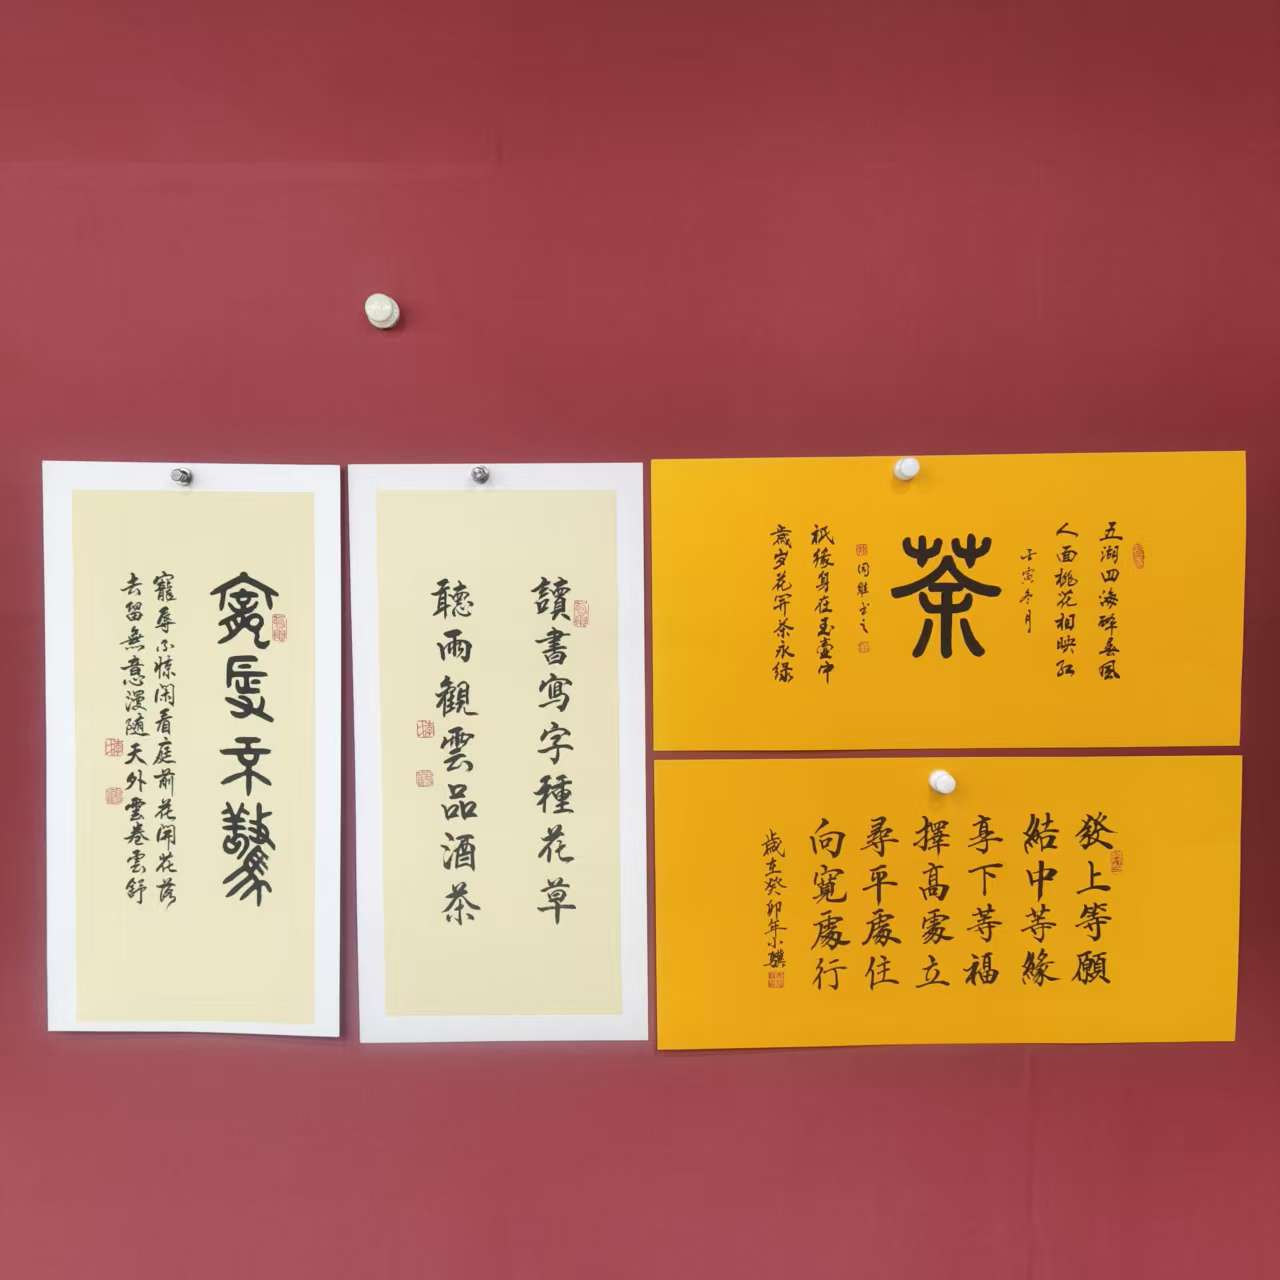 寵辱不驚
寵辱不惊闲看庭前花開花落
去留無意漫隨天外雲卷雲舒
讀書寫字種花草
聽雨観雲品酒茶
五湖四海醉春風
人面桃花相映红
壬寅冬月
茶
祇缘身在玉壶中
歲岁花开茶永绿
發上等願
結中等緣
享下等福
擇高處立
尋平處住
向寬處行
歲在癸卯年小騏